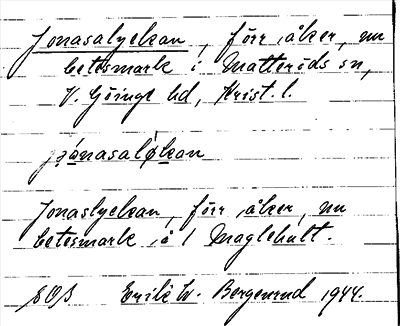 Jonasalyckan, förr åker, nu
betesmark i Matteröds sn,
V. Göinge hd, Krist. l.
jɔ́nasaløkan
Jonaslyckan, förr åker, nu
betesmark å 1 Maglehult.
Erik W. Bergenrud 1944.